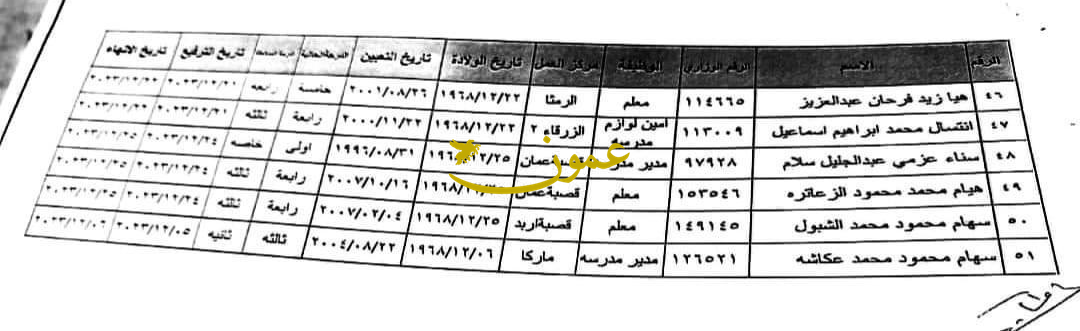 الرقم الاسم الرقم الوزاري الوظيفة مركز العمل تاريخ الولادة تاريخ التعيين الدرجة الحالية تاريخ الترفيع تاريخ الانهاء
٤٦ هيا زيد فرحان عبدالعزيز ١١٤٦٦٥ معلم الرمثا ١٩٦٨/١٢/٢٢ ٢٠٠١/٠٨/٢٦ خامسة رابعه ٢٠٢٣/١٢/٢١ ٢٠٢٣/١٢/٢٢
٤٧ انتسال محمد ابراهيم اسماعيل ١١٣٠٠٩ امين لوازم مدرسه الزرقاء ٢ ١٩٦٨/١٢/٢٢ ٢٠٠٠/١١/٢٢ رابعة ثالثه ٢٠٢٣/١٢/٢١ ٢٠٢٣/١٢/٢٢
٤٨ سناء عزمي عبدالجليل سلام ٩٧٩٢٨ مدير قصبةعمان ١٢/٢٥ ١٩٩٦/٠٨/٣١ اولى خاصه ٢٠٢٣/١٢/٢٤ ٢٠٢٣/١٢/٢٥
٤٩ هيام محمد محمود الزعاتره ١٥٣٥٤٦ معلم قصبةعمان ٢٠٠٧/١٠/١٦ رابعة ثالثه ٢٠٢٣/١٢/٢٤ ٢٠٢٣/١٢/٢٥
٥٠ سهام محمود محمد الشبول ١٤٩١٤٥ معلم قصبةاربد ١٩٦٨/١٢/٢٥ ٢٠٠٧/٠٢/٠٤ رابعة ثالثه ٢٠٢٣/١٢/٢٤ ٢٠٢٣/١٢/٢٥
٥١ سهام محمود محمد عكاشه ١٢٦٥٢١ مدير مدرسه ماركا ١٩٦٨/١٢/٠٦ ٢٠٠٤/٠٨/٢٢ ثالثه ثانيه ٢٠٢٣/١٢/٠٥ ٢٠٢٣/١٢/٠٦
عمون